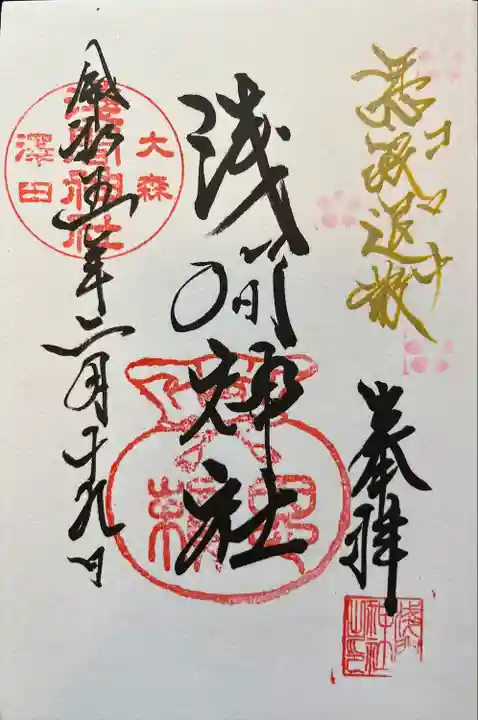 悪疫退散
コロナ
奉拝
浅間神社
浅間神社之印
大森
澤田
浅間神社
令和五年二月十九日